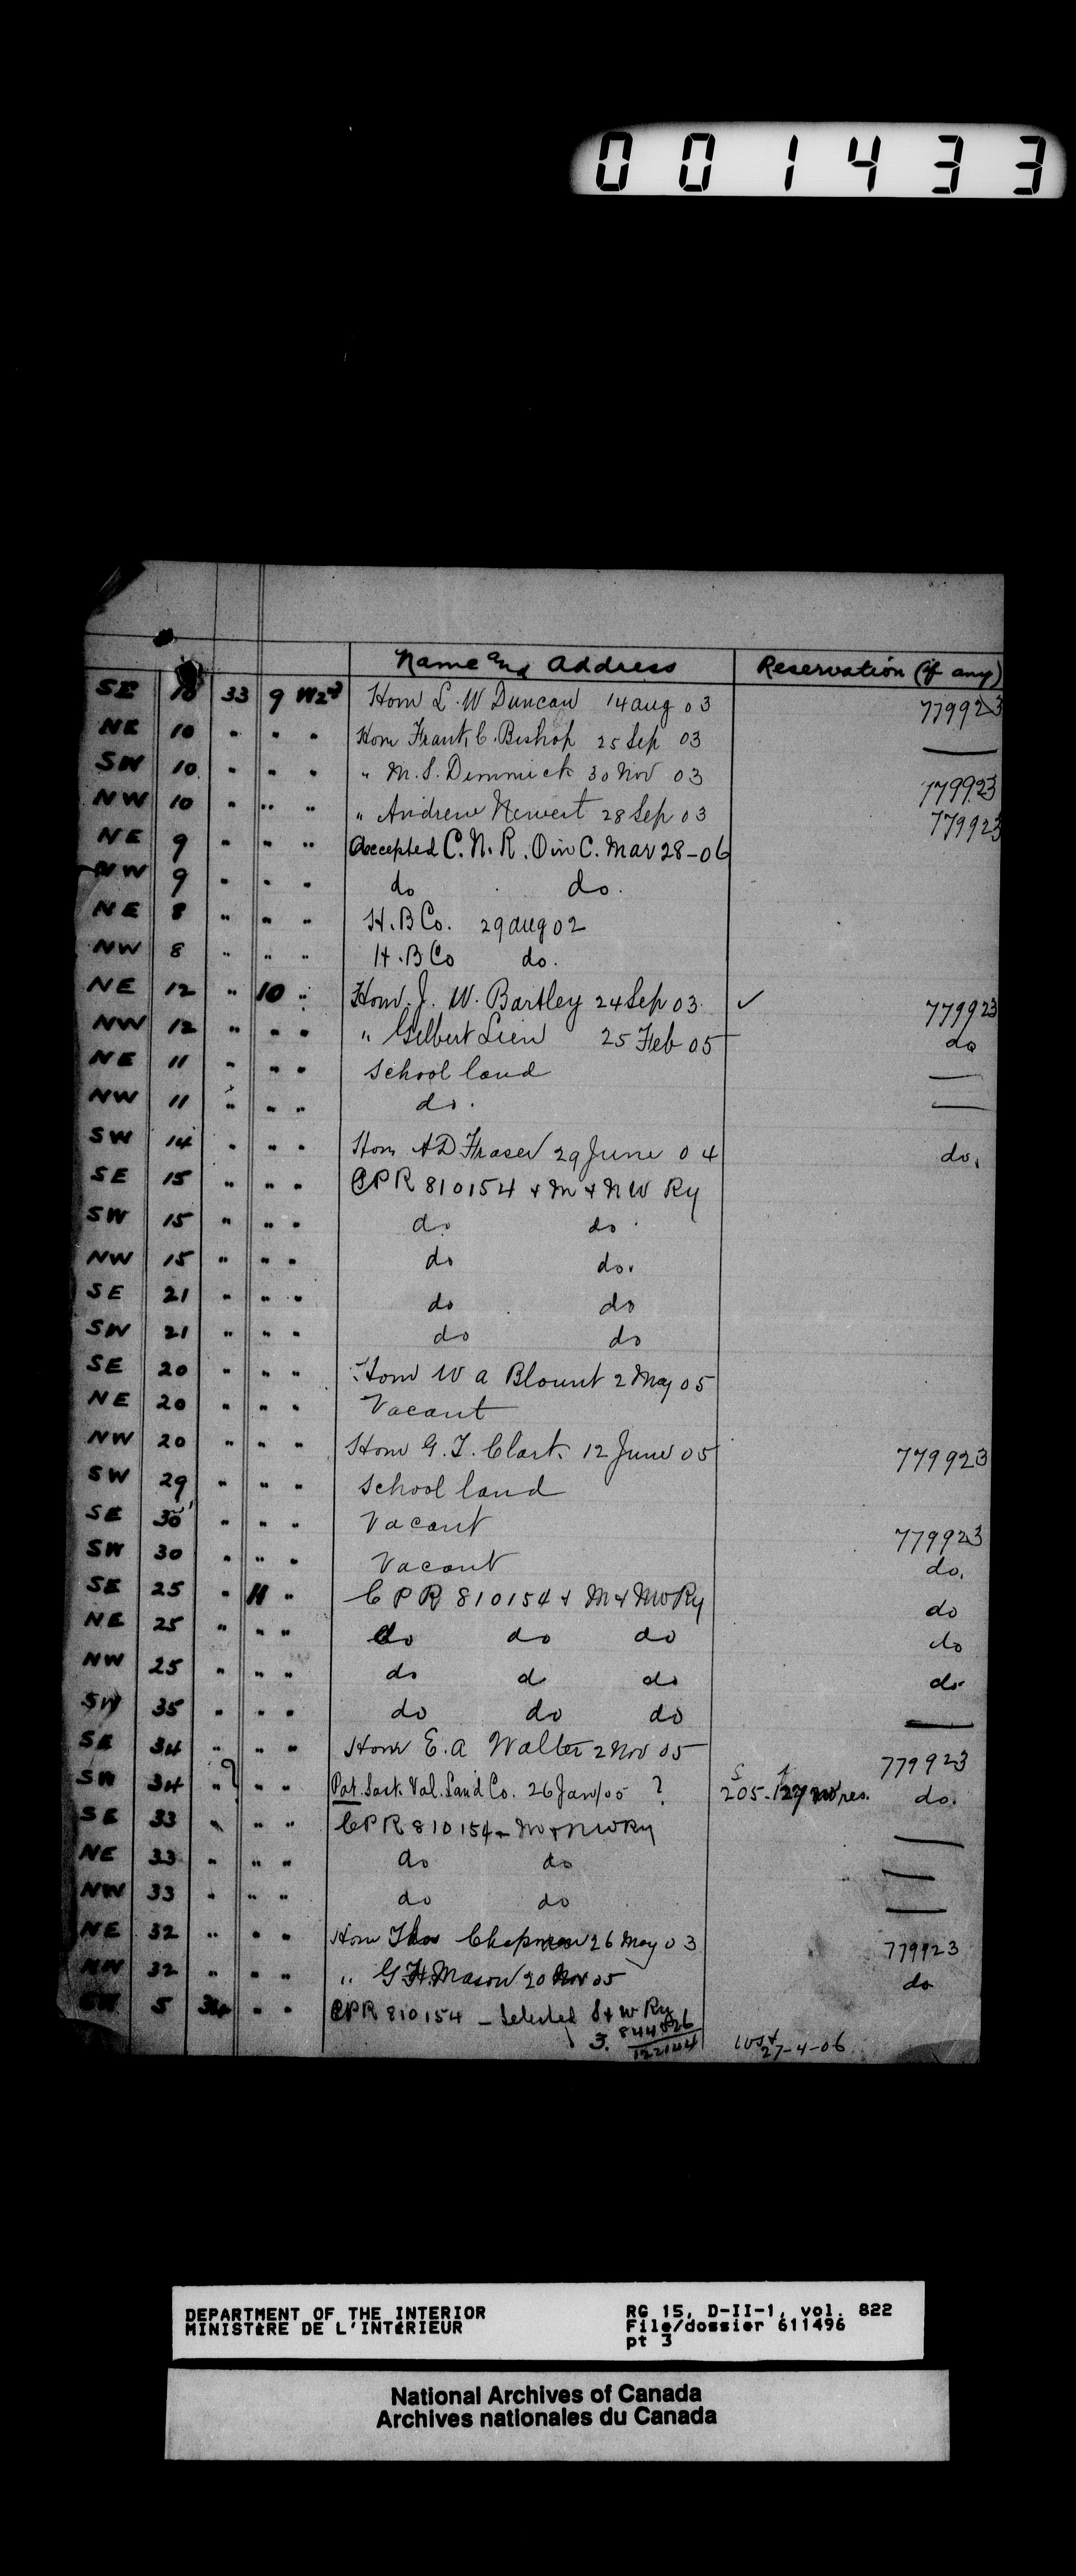 001433
Name and Address Reservation (if any)
SE 10 33 9 W2nd Hom L. W Duncan 14 Aug 03 779923
NE 10 " " " Hom Frank C. Bishop 25 Sep 03 —
SW 10 " " " " M. S. Dimmick 30 Nov 03 779923
NW 10 " " " " Andrew 28 Sep 03 779923
NE 9 " " " Accepted C. N. R. O in C. Mar 28-06
NW 9 " " " do do.
NE 8 " " " H. B Co. 29 Aug 02
NW 8 " " " H. B Co do.
NE 12 " 10 " Hom. J. W. Bartley 24 Sep 03. ✓ 779923
NW 12 " " " " Gilbert Lien 25 Feb 05 do
NE 11 " " " School land —
NW 11 " " " do. —
SW 14 " " " Hom A D Fraser 29 June 04 do.
SE 15 " " " CPR 810154 & M & NW Ry
SW 15 " " " do. do.
NW 15 " " " do do.
SE 21 " " " do do
SW 21 " " " do do
SE 20 " " " Hom W A Blount 2 May 05
NE 20 " " " Vacant
NW 20 " " " Hom G. T. Clark 12 June 05 779923
SW 29 " " " School land
SE 30 " " " Vacant 779923
SW 30 " " " Vacant do.
SE 25 " 11 " C P R 810154 & M & NW Ry do
NE 25 " " " do do do do
NW 25 " " " do d do do
SW 35 " " " do do do —
SE 34 " " " Hom E. A Walter 2 Nov 05 779923
SW 34 " ? " " Pat. Sask. Val. Land Co. 26 Jan/05 ? 205- res. do.
SE 33 " " " CPR 810154 & M & NW Ry —
NE 33 " " " do do —
NW 33 " " " do do —
NE 32 " " " Hom Thos Chapman 26 May 03 779923
NW 32 " " " " G H. Mason 20 Nov 05 do
SW 5 34 " " CPR 810154 - Selected S & W Ry
3. 844826
122144 27-4-06
DEPARTMENT OF THE INTERIOR RG 15, D-II-1, vol. 822
MINISTÈRE DE L'INTÉRIEUR File/dossier 611496
pt 3
National Archives of Canada
Archives nationales du Canada